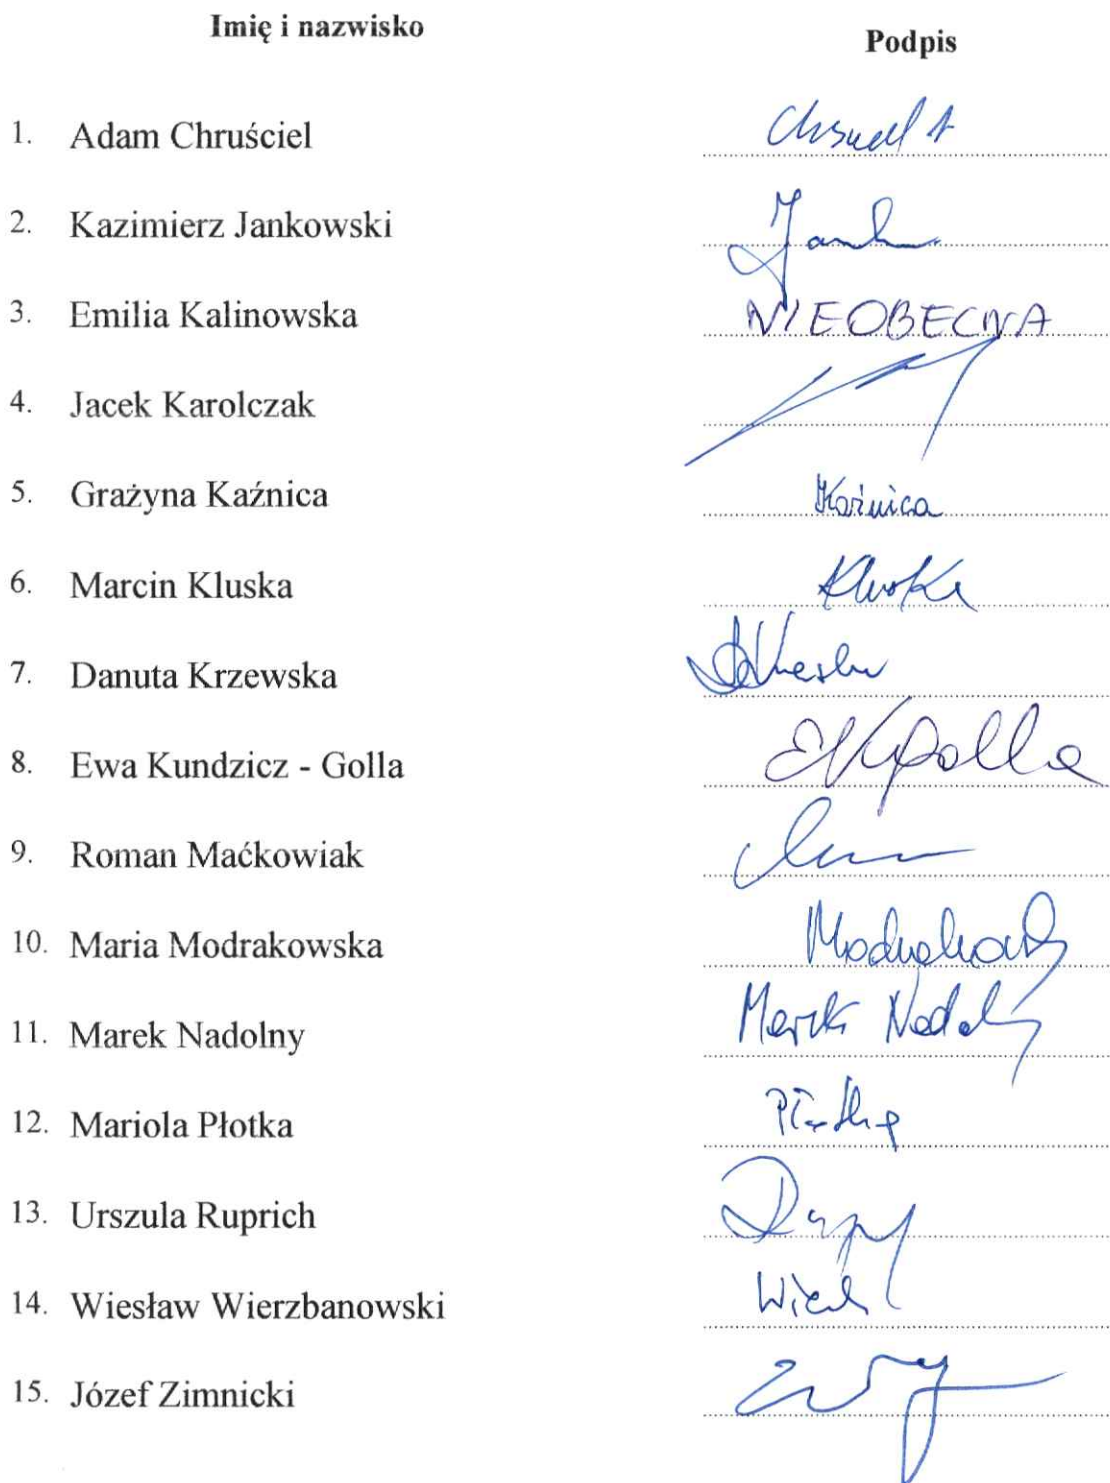 Imię i nazwisko Podpis
1. Adam Chruściel
2. Kazimierz Jankowski
3. Emilia Kalinowska NIEOBECNA
4. Jacek Karolczak
5. Grażyna Kaźnica Kaźnica
6. Marcin Kluska Kluska
7. Danuta Krzewska
8. Ewa Kundzicz - Golla EKGolla
9. Roman Maćkowiak
10. Maria Modrakowska
11. Marek Nadolny Marek Nadolny
12. Mariola Płotka Płotka
13. Urszula Ruprich
14. Wiesław Wierzbanowski
15. Józef Zimnicki